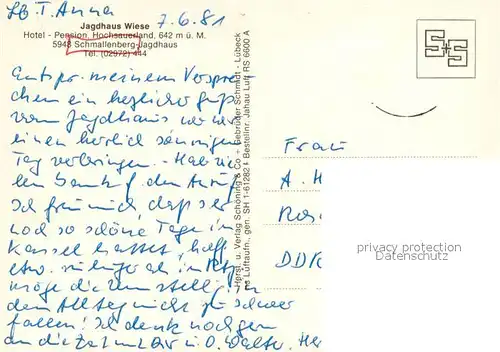 Lb T. Anna 7.6.81
Jagdhaus Wiese
Hotel - Pension, Hochsauerland, 642 m ü. M.
5948 Schmallenberg-Jagdhaus
Tel. (02972) 444
Entspr. meinem Verspre
chen ein herzlicher Gruß
vom Jagdhaus wo wir
einen herrlich sonnigen
Tag verbringen. - Hab vie
len Dank f. den Anruf
Ich freu mich, daß ihr
noch so schöne Tage in
Kassel hattet, hoff.
etw.
möge die
dem Alltag nicht zu schwer
fallen! Ich denk noch gern
an die Zeit m. Dir u. O. Walter.
Herst. u. Verlag Schöning & Co + Gebrüder Schmidt - Lübeck
Luftaufn., gen. SH 1-61282 Bestellnr. Jahau Luft RS 6600 A
S+S
Frau
A. H
DDR
privacy protection
Datenschutz